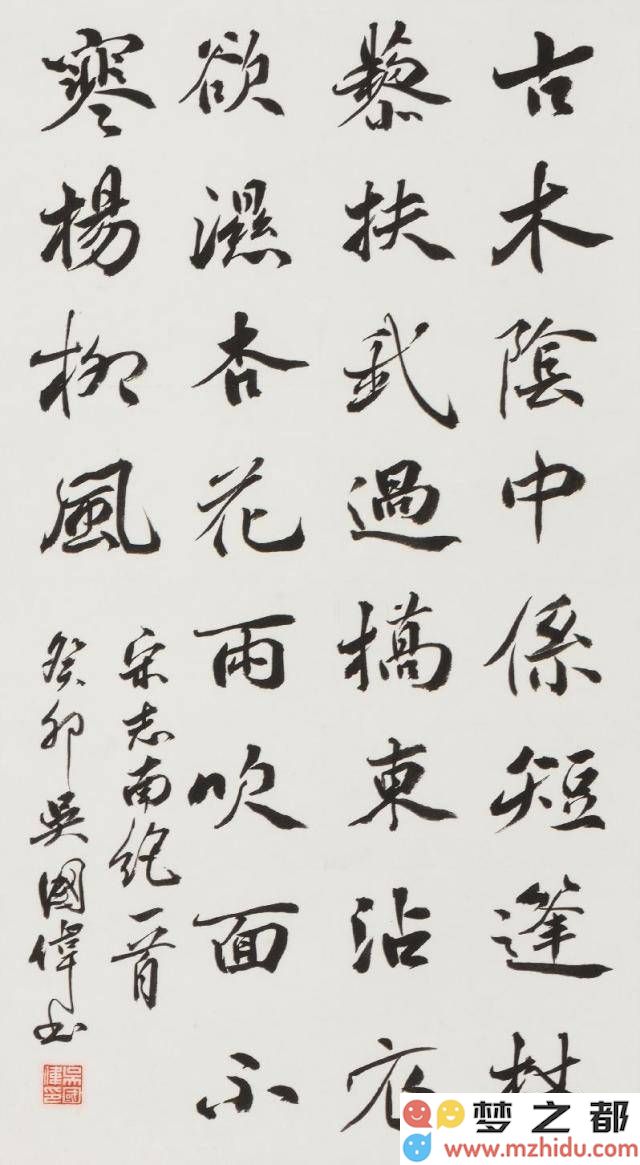 古木陰中係短篷杖
藜扶我過橋東沾衣
欲濕杏花雨吹面不
寒楊柳風
宋志南絶一首
癸卯吳國偉书
吳國偉印
梦之都
www.mzhidu.com